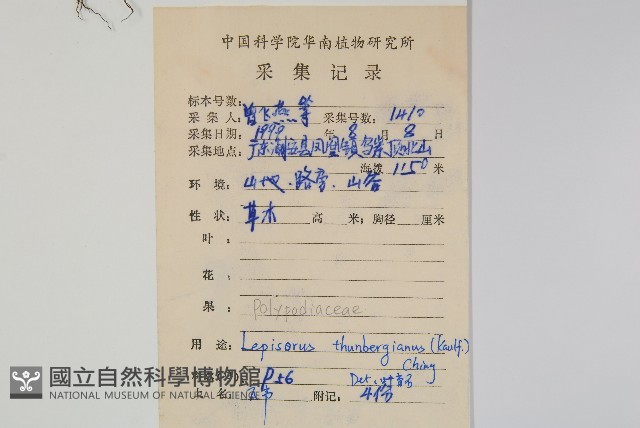 中国科学院华南植物研究所
采集记录
标本号数:
采集人: 曾飞燕等 采集号数: 1410
采集日期: 1999 年 8 月 8 日
采集地点: 广东潮安县凤凰镇乌岽顶北山
海拨 1150 米
环境: 山地.路旁.山谷
性状: 草本 高 米; 胸径 厘米
叶:
花:
果: Polypodiaceae
用途: Lepisorus thunbergianus (Kaulf.)
Ching
P56 Det.
土名: 附记: 4份
國立自然科學博物館
NATIONAL MUSEUM OF NATURAL SCIENCE